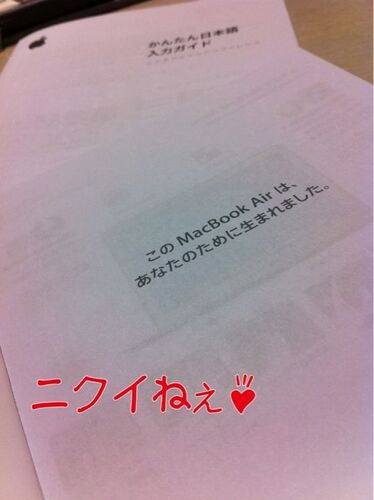 かんたん日本語
入力ガイド
このMacBook Airは、
あなたのために生まれました。
ニクイねぇ